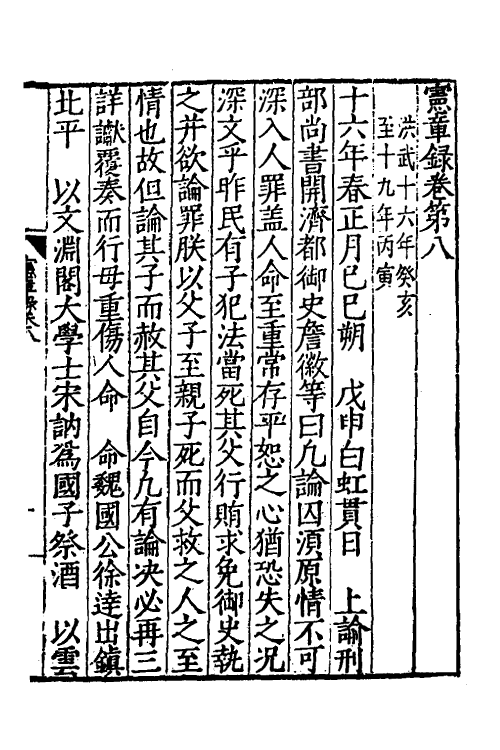 憲章録卷第八
洪武十六年癸亥
至十九年丙寅
十六年春正月己巳朔　戊申白虹貫日　上諭刑
部尚書開濟都御史詹徽等曰凢論囚湏原情不可
深入人罪盖人命至重常存平恕之心猶恐失之况
深文乎昨民有子犯法當死其父行賄求免御史執
之并欲論罪朕以父子至親子死而父救之人之至
情也故但論其子而赦其父自今凢有論决必再三
詳讞覆奏而行毋重傷人命　命魏國公徐逹出鎮
北平　以文淵閣大學士宋訥爲國子祭酒　以雲